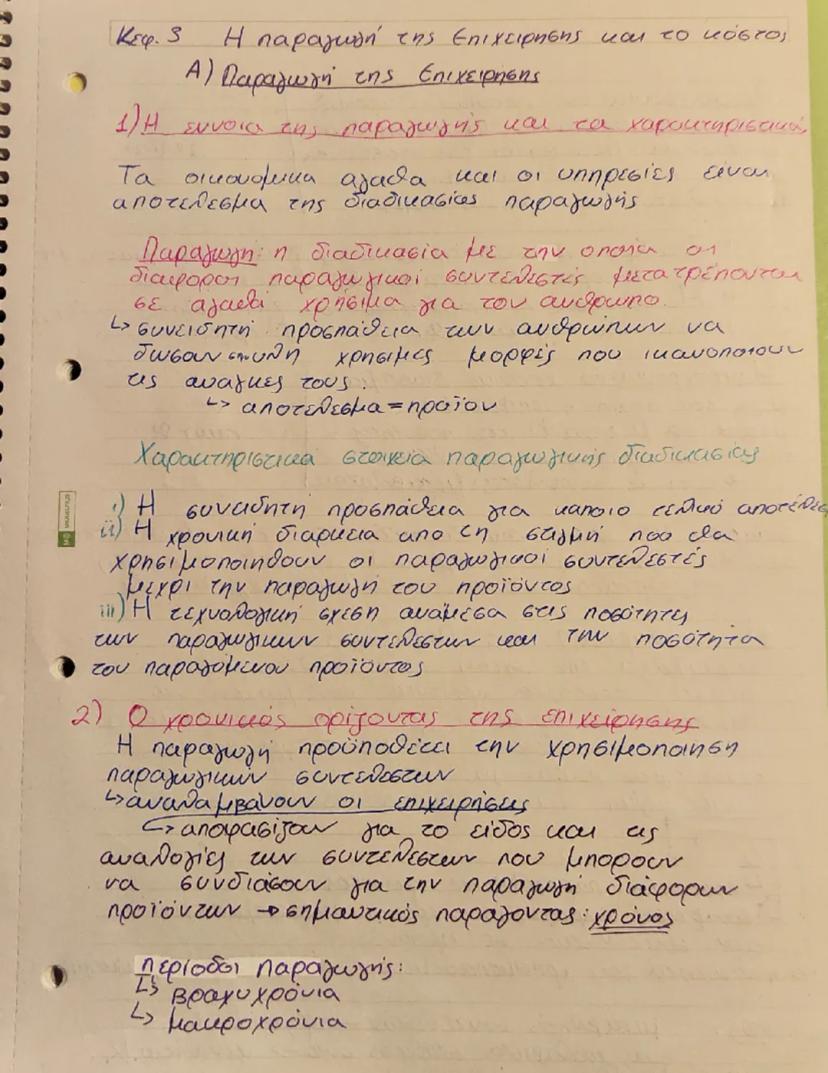 Κεφ. 3 Η παραγωγή της Επιχείρησης και το κόστος
Α) Παραγωγή της Επιχείρησης
1) Η έννοια της παραγωγής και τα χαρακτηριστικά
Τα οικονομικα αγαθα και οι υπηρεσίες είναι
αποτελεσμα της διαδικασίας παραγωγής
Παραγωγη: η διαδικασία με την οποία οι
διαφοροι παραγωγικοί συντελεστές μετατρέπονται
σε αγαθά χρήσιμα για τον ανθρωπο.
↳ συνειδητή προσπάθεια των ανθρώπων να
δωσουν στην υλη χρησιμες μορφές που ικανοποιουν
τις αναγκες τους.
↳ αποτελεσμα = προϊον
Χαρακτηριστικά στοιχεία παραγωγικής διαδικασίας
i) Η συνειδητή προσπάθεια για καποιο τελικό αποτέλεσ
ii) Η χρονική διαρκεια απο τη στιγμή που θα
χρησιμοποιηθουν οι παραγωγικοί συντελεστές
μεχρι την παραγωγή του προϊόντος
iii) Η τεχνολογική σχεση αναμεσα στις ποσότητες
των παραγωγικων συντελεστων και την ποσότητα
του παραγόμενου προϊόντος
2) Ο χρονικός ορίζοντας της επιχείρησης
Η παραγωγή προϋποθέτει την χρησιμοποιηση
παραγωγικών συντελεστων
↳ αναλαμβάνουν οι επιχειρήσεις
↳ αποφασίζουν για το είδος και τις
αναλογίες των συντελεστων που μπορουν
να συνδιάσουν για την παραγωγή διάφορων
προϊόντων → σημαντικός παράγοντας: χρόνος
περίοδοι παραγωγής:
↳ βραχυχρόνια
↳ μακροχρόνια